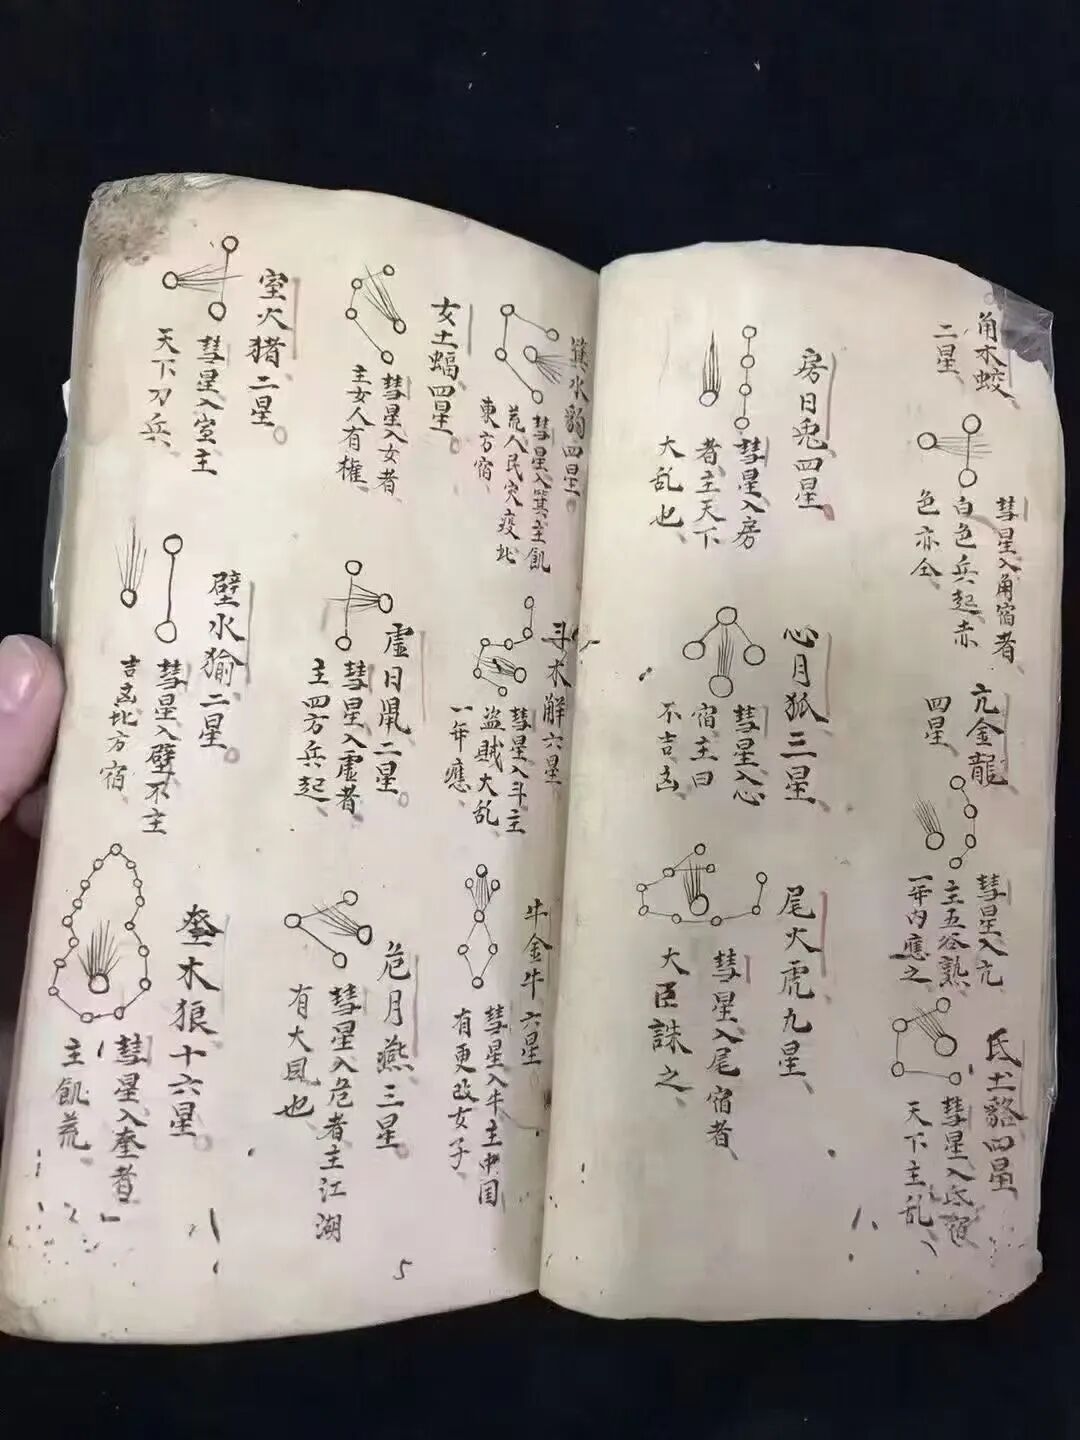 角木蛟
二星
彗星入角宿者
白色兵起赤
色亦仝
亢金龍
四星
彗星入亢
主五谷熟
一年内應之
氐土貉四星
彗星入氐宿
天下主乱
房日兎四星
彗星入房
者主天下
大乱也
心月狐三星
彗星入心
宿主曰
不吉凶
尾火虎九星
彗星入尾宿者
大臣誅之
箕水豹四星
彗星入箕主飢
荒人民灾疫北
東方宿
斗木觧六星
彗星入斗主
盗賊大乱
一年應
牛金牛六星
彗星入牛主中国
有更改女子
女土蝠四星
彗星入女者
主女人有權
虚日鼠二星
彗星入虚者
主四方兵起
危月燕三星
彗星入危者主江湖
有大風也
室火猪二星
彗星入室主
天下刀兵
壁水㺄二星
彗星入壁不主
吉凶北方宿
奎木狼十六星
彗星入奎者
主飢荒
5